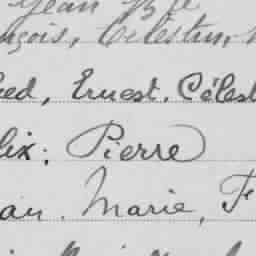 Jean B
nçois, Célestin,
ed, Ernest, Célest
lix: Pierre
an. Marie, F